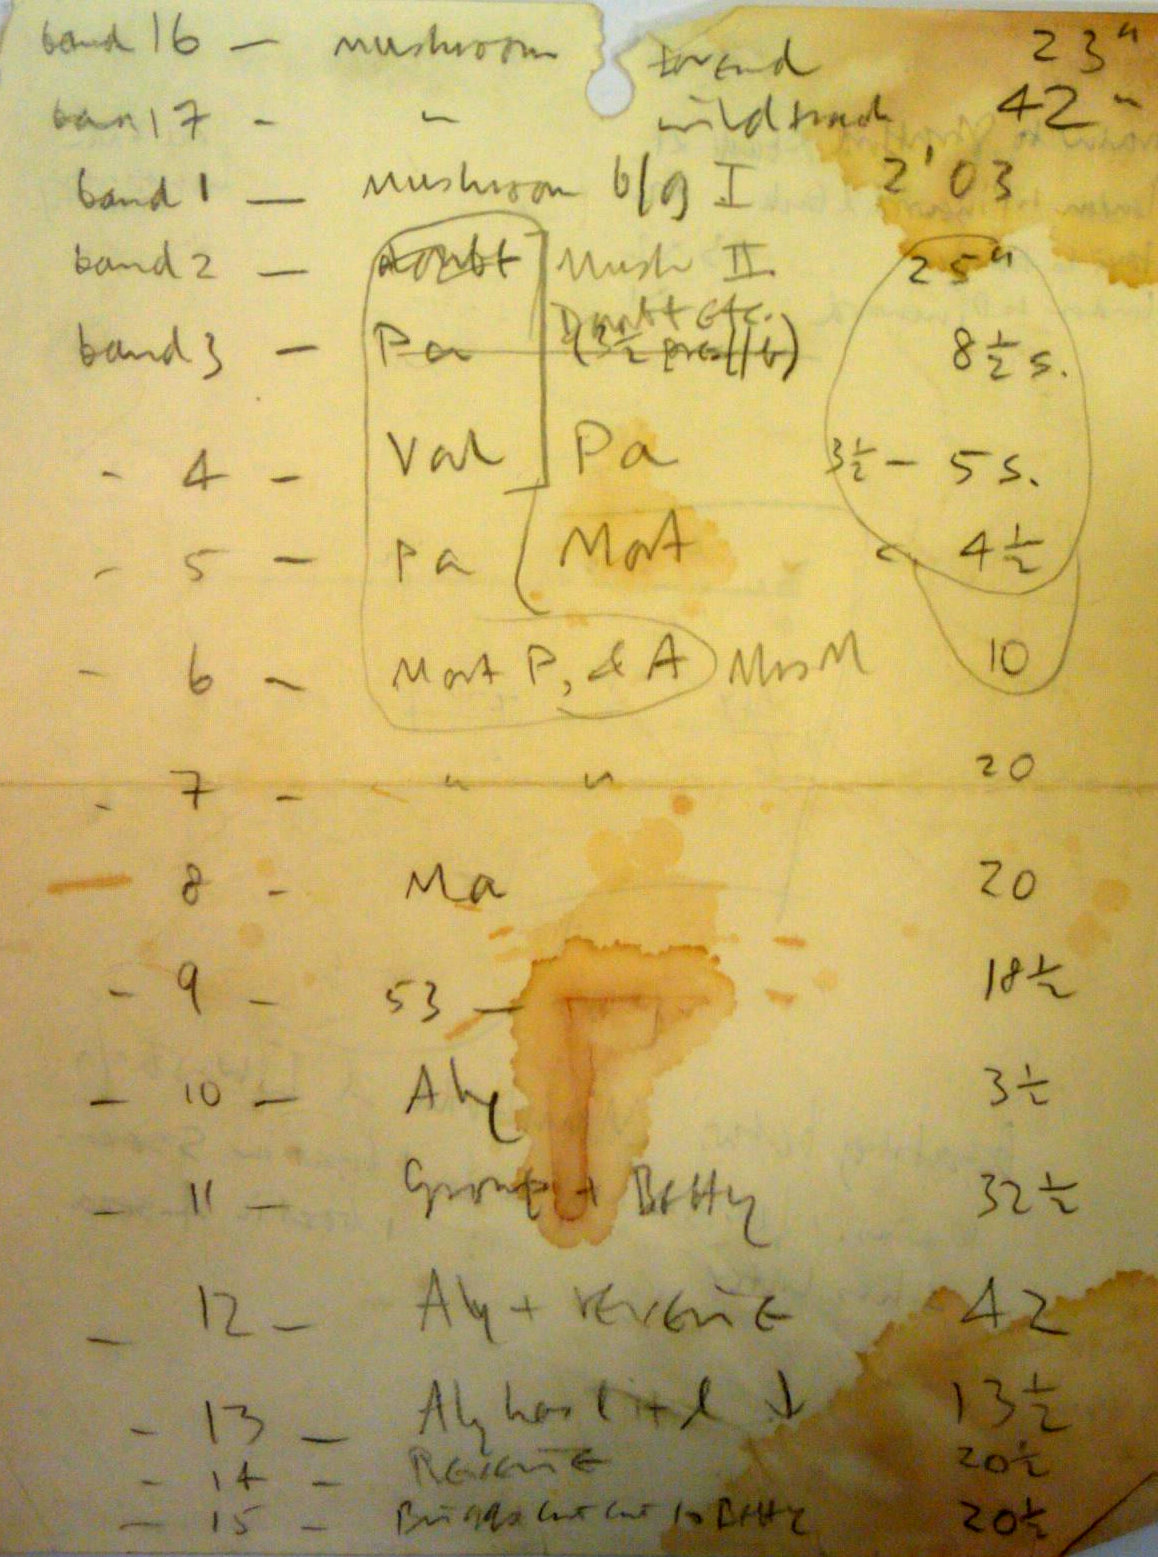 band 16 — mushroom for end 23"
band 17 - " wildtrack 42 "
band 1 — mushroom b/g I 2'03
band 2 — Doubt Mush II. 25"
Doubt etc.
band 3 — Pa (3½ 8½ s.
- 4 - Val Pa 3½ - 5 s.
- 5 - Pa Mort 4½
- 6 - Mort P, & A Mrs M 10
- 7 - " " 20
- 8 - Ma 20
- 9 - 53 — 18½
- 10 - Aly 3½
- 11 - Group + Betty 32½
- 12 - Aly + reverie 42
- 13 - Aly has ↓ 13½
- 14 - Reverie 20½
- 15 - Briggs cut to Betty 20½